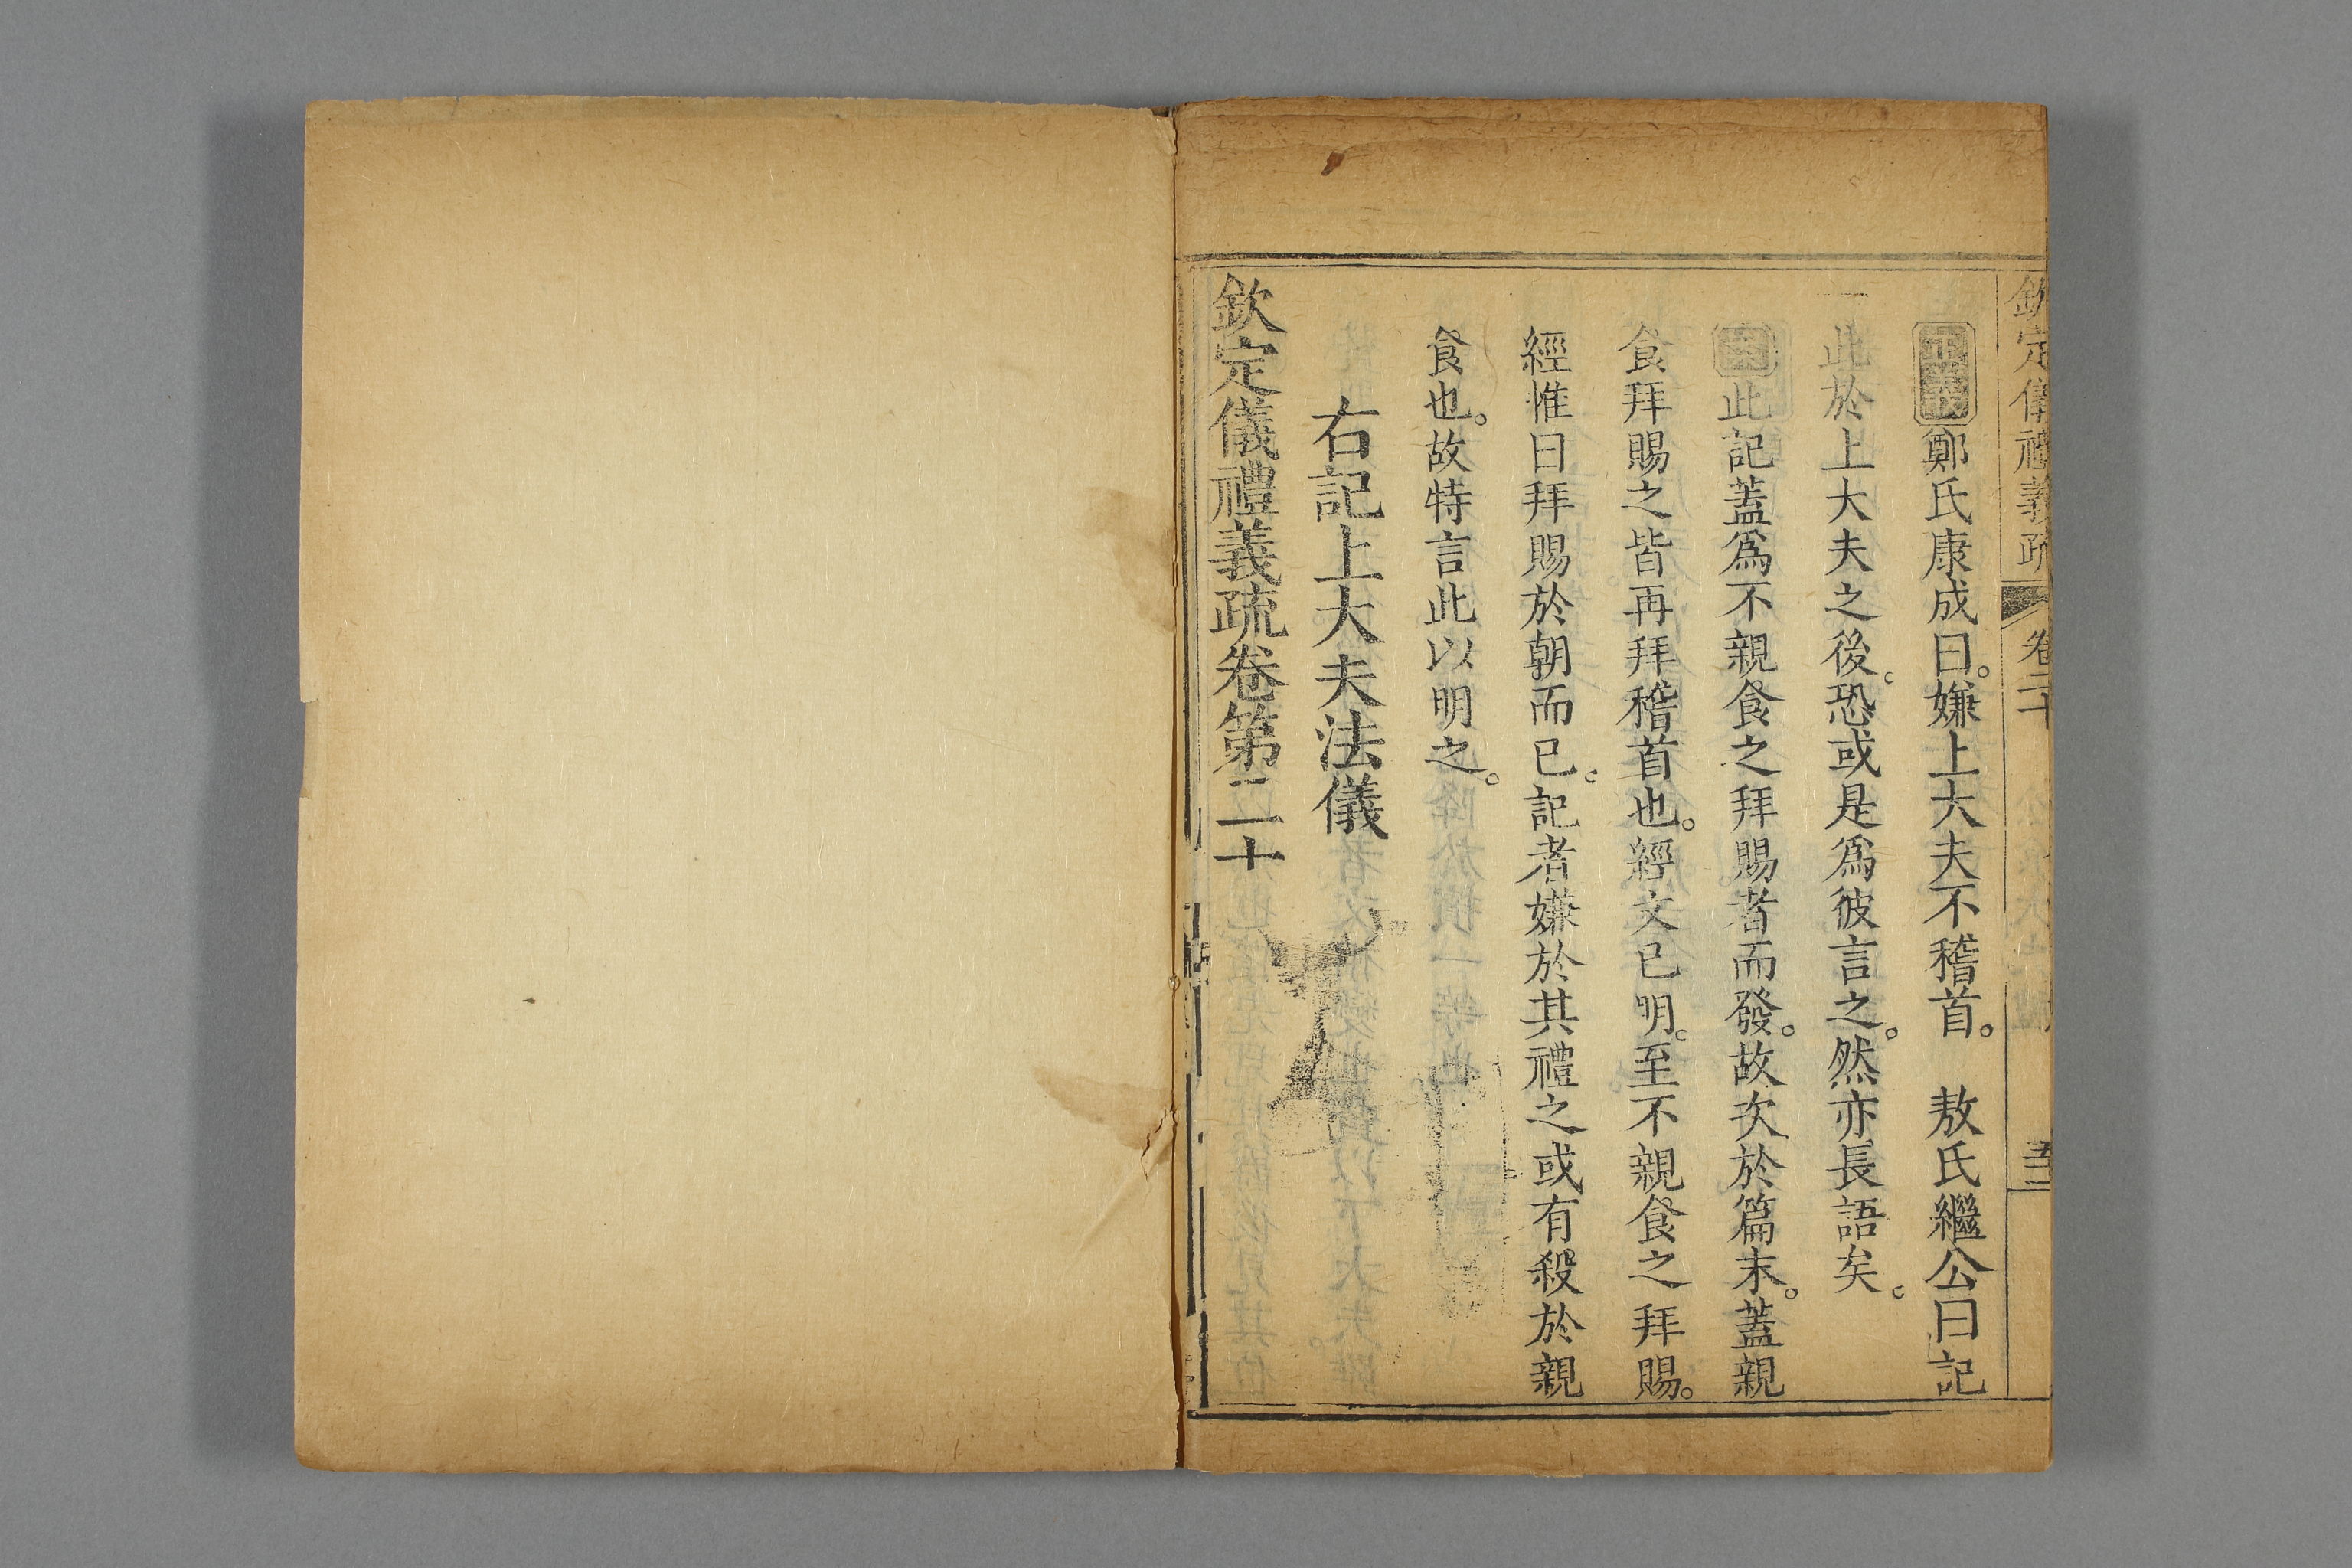 欽定儀禮義疏 卷二十
正義鄭氏康成曰。嫌上大夫不稽首。 敖氏繼公曰記
此於上大夫之後。恐或是爲彼言之。然亦長語矣。
案此記蓋爲不親食之拜賜者而發。故次於篇末。蓋親
食拜賜之皆再拜稽首也。經文已明。至不親食之拜賜。
經惟曰拜賜於朝而已。記者嫌於其禮之或有殺於親
食也。故特言此以明之。
右記上大夫法儀
欽定儀禮義疏卷第二十